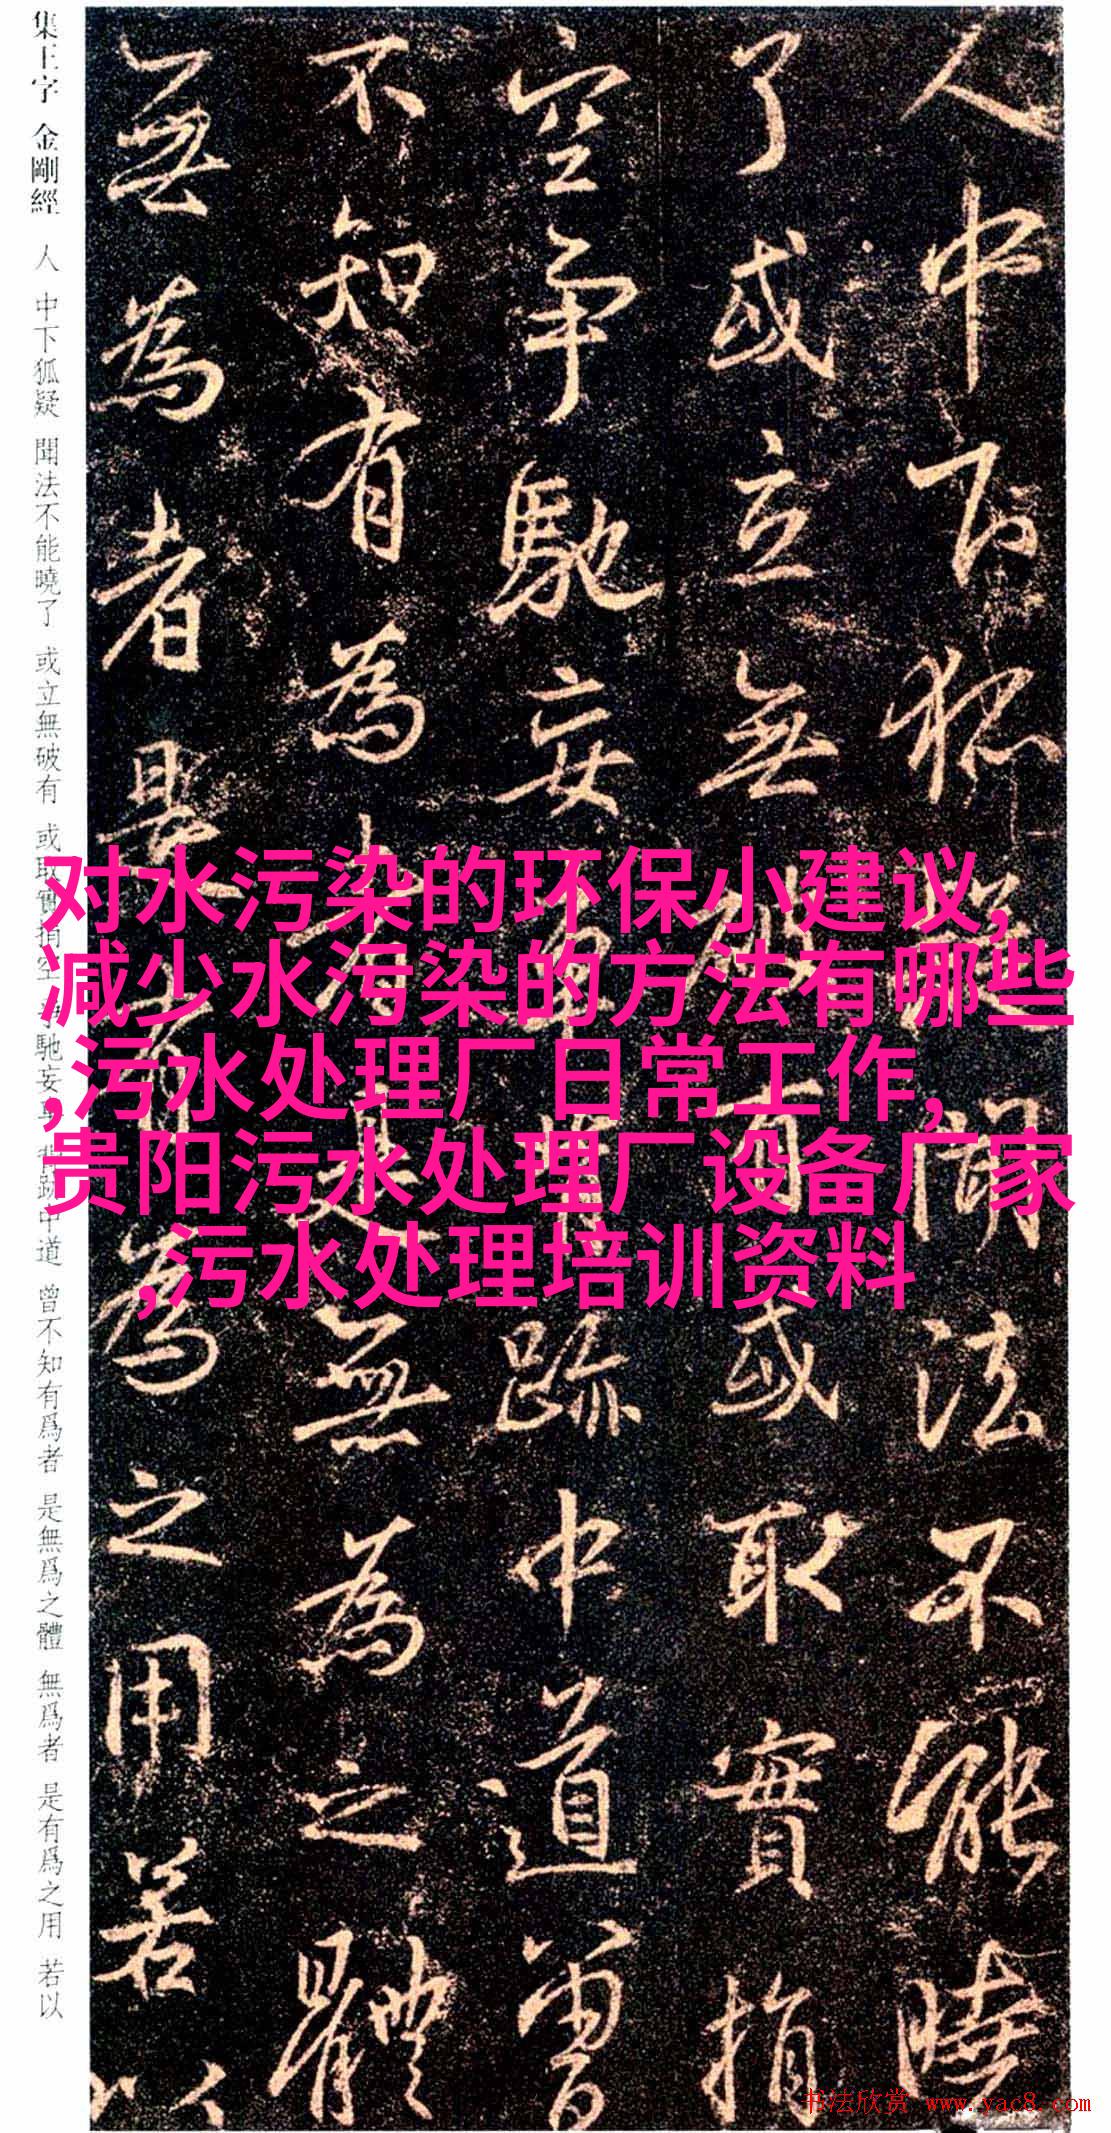 集王字 金剛經 人 中下狐疑 聞法不能曉了 或立無破有 或取實捐空 爭馳妄 背跡中道 曾不知有爲者 是無爲之體 無爲者 是有爲之用 若以
人中下狐疑聞法不能曉
了或立無破有或取實捐
空爭馳妄背跡中道曾
不知有為者是無為之體
無為者是有為之用若以
对水污染的环保小建议,
减少水污染的方法有哪些
,污水处理厂日常工作,
贵阳污水处理厂设备厂家
,污水处理培训资料
书法欣赏 www.yac8.com